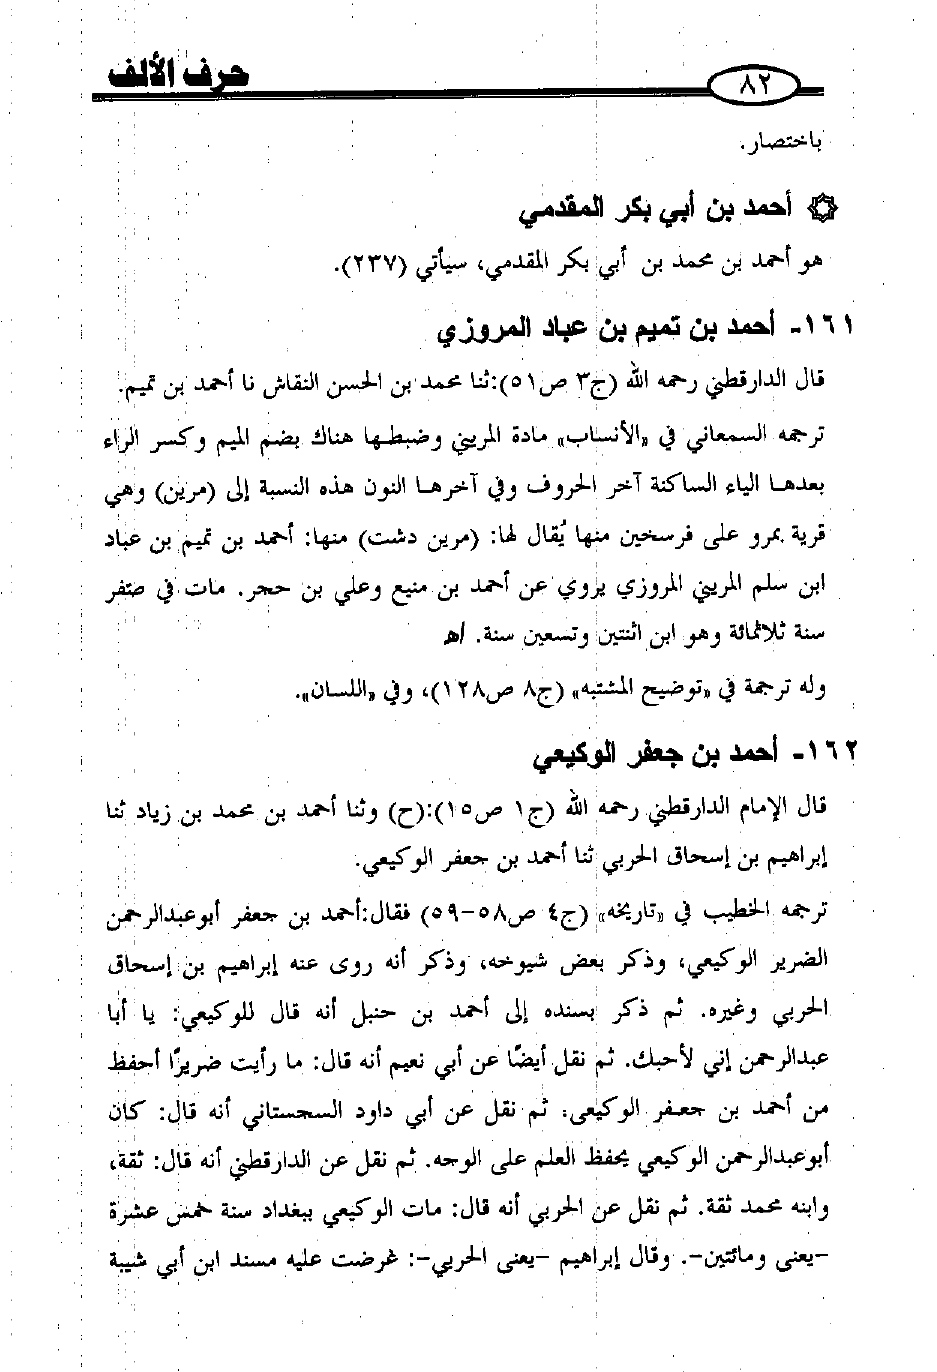 ٨٢ حرف الألف
باختصار.
۞ أحمد بن أبي بكر المقدمي
هو أحمد بن محمد بن أبي بكر المقدمي، سيأتي (٢٣٧).
١٦١- أحمد بن تميم بن عباد المروزي
قال الدارقطني رحمه الله (ج٣ ص٥١):ثنا محمد بن الحسن النقاش نا أحمد بن تميم.
ترجمه السمعاني في «الأنساب» مادة المريني وضبطها هناك بضم الميم وكسر الراء
بعدها الياء الساكنة آخر الحروف وفي آخرها النون هذه النسبة إلى (مرين) وهي
قرية بمرو على فرسخين منها يُقال لها: (مرين دشت) منها: أحمد بن تميم بن عباد
ابن سلم المريني المروزي يروي عن أحمد بن منيع وعلي بن حجر. مات في صفر
سنة ثلاثمائة وهو ابن اثنتين وتسعين سنة. اﻫ
وله ترجمة في «توضيح المشتبه» (ج٨ ص١٢٨)، وفي «اللسان».
١٦٢- أحمد بن جعفر الوكيعي
قال الإمام الدارقطني رحمه الله (ج١ ص١٥):(ح) وثنا أحمد بن محمد بن زياد ثنا
إبراهيم بن إسحاق الحربي ثنا أحمد بن جعفر الوكيعي.
ترجمه الخطيب في «تاريخه» (ج٤ ص٥٨-٥٩) فقال:أحمد بن جعفر أبوعبدالرحمن
الضرير الوكيعي، وذكر بعض شيوخه، وذكر أنه روى عنه إبراهيم بن إسحاق
الحربي وغيره. ثم ذكر بسنده إلى أحمد بن حنبل أنه قال للوكيعي: يا أبا
عبدالرحمن إني لأحبك. ثم نقل أيضًا عن أبي نعيم أنه قال: ما رأيت ضريرًا أحفظ
من أحمد بن جعفر الوكيعي. ثم نقل عن أبي داود السجستاني أنه قال: كان
أبوعبدالرحمن الوكيعي يحفظ العلم على الوجه. ثم نقل عن الدارقطني أنه قال: ثقة،
وابنه محمد ثقة. ثم نقل عن الحربي أنه قال: مات الوكيعي ببغداد سنة خمس عشرة
-يعني ومائتين-. وقال إبراهيم -يعنى الحربي-: عرضت عليه مسند ابن أبي شيبة